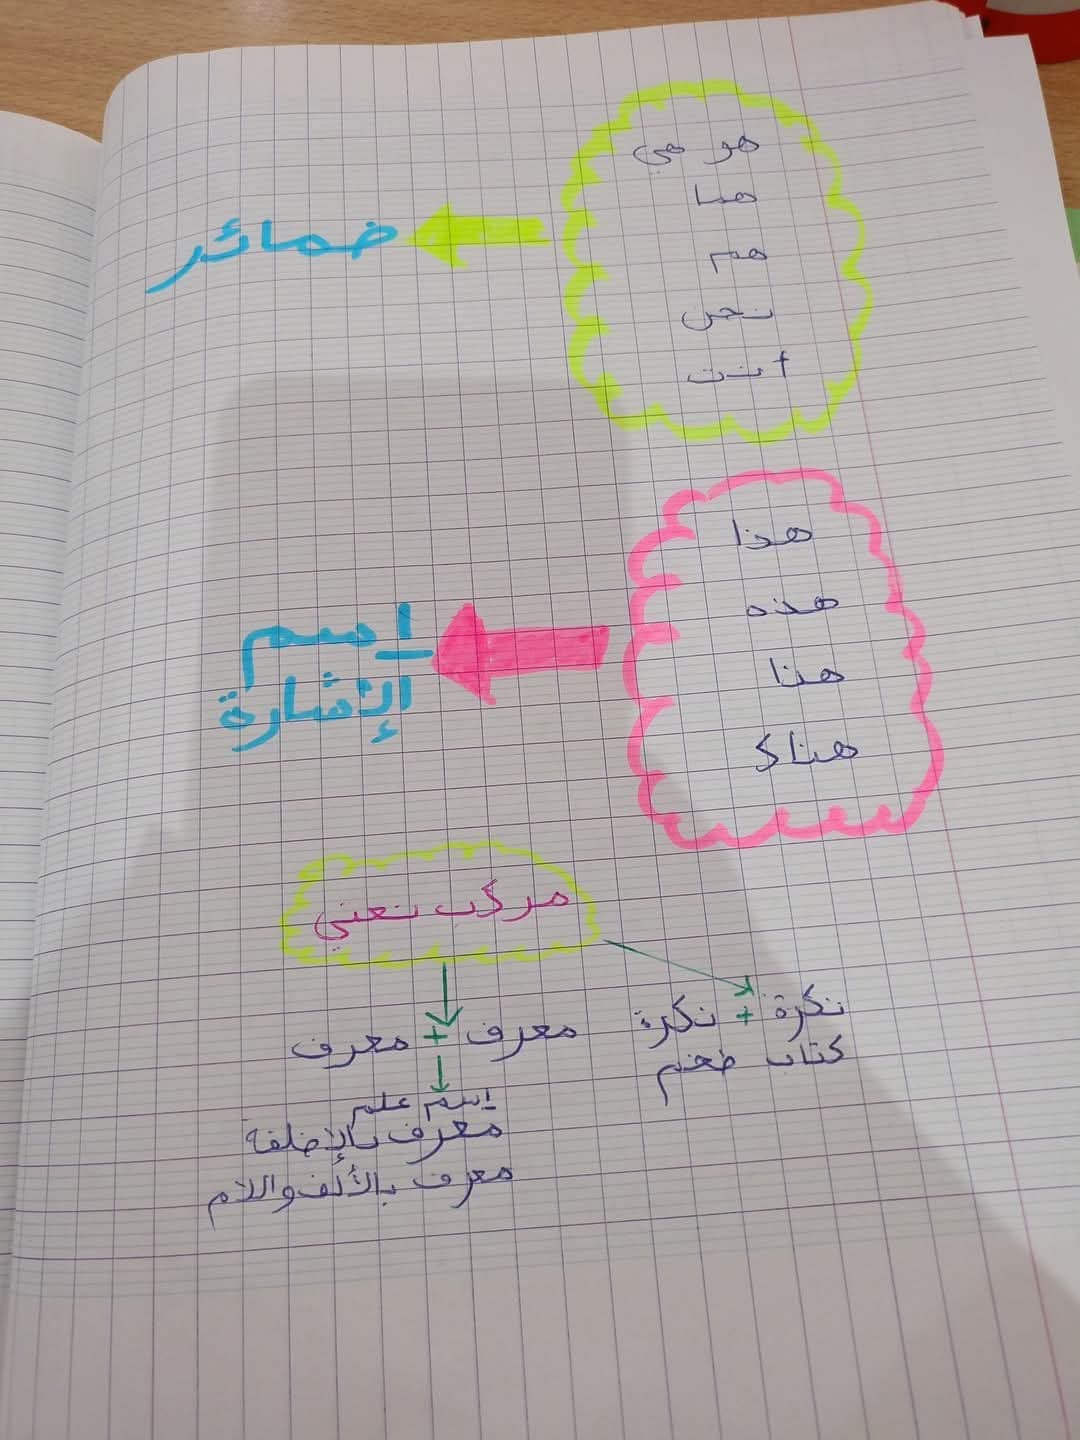 هو هي
هما
هم
نحن
أنت
ضمائر
هذا
هذه
هنا
هناك
اسم
الإشارة
مركب نعتي
نكرة + نكرة
كتاب ضخم
معرف + معرف
إسم علم
معرف بالإضافة
معرف بالألف واللام